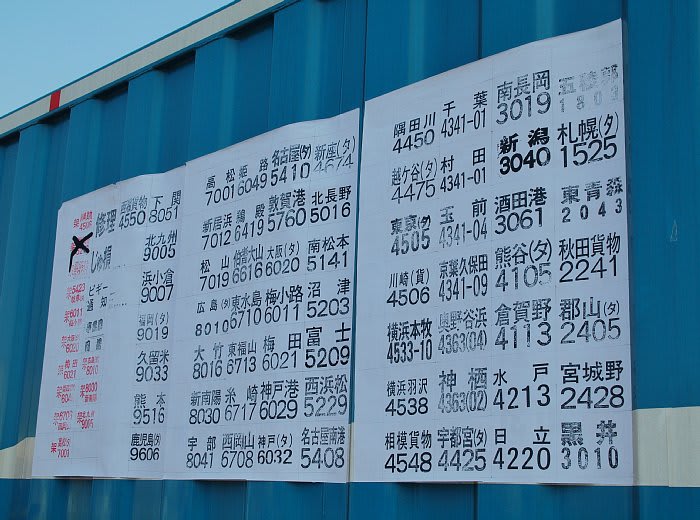 隅田川 千葉 南長岡
4450 4341-01 3019
越ケ谷(タ) 村田 新潟 札幌(タ)
4475 4341-01 3040 1525
東京(タ) 玉前 酒田港 東青森
4505 4341-04 3061 2043
川崎(貨) 京葉久保田 熊谷(タ) 秋田貨物
4506 4341-09 4105 2241
横浜本牧 奥野谷浜 倉賀野 郡山(タ)
4533-10 4363(04) 4113 2405
横浜羽沢 神栖 水戸 宮城野
4538 4363(02) 4213 2428
相模貨物 宇都宮(タ) 日立 黒井
4548 4425 4220 3010
高松 姫路 名古屋(タ) 新座(タ)
7001 6049 5410 4674
新居浜 鷄殿 敦賀港 北長野
7012 6419 5760 5016
松山 伯耆大山 大阪(タ) 南松本
7019 6616 6020 5141
広島(タ) 東水島 梅小路 沼津
8010 6710 6011 5203
大竹 東福山 梅田 富士
8016 6713 6021 5209
新南陽 糸崎 神戸港 西浜松
8030 6717 6029 5229
宇部 西岡山 神戸(タ) 名古屋南港
8041 6708 6032 5408
修理 下関
4550 8051
じゅ損 北九州
9005
ピギー 浜小倉
通知 9007
福岡(タ)
9019
久留米
9033
熊本
9516
鹿児島(タ)
9606